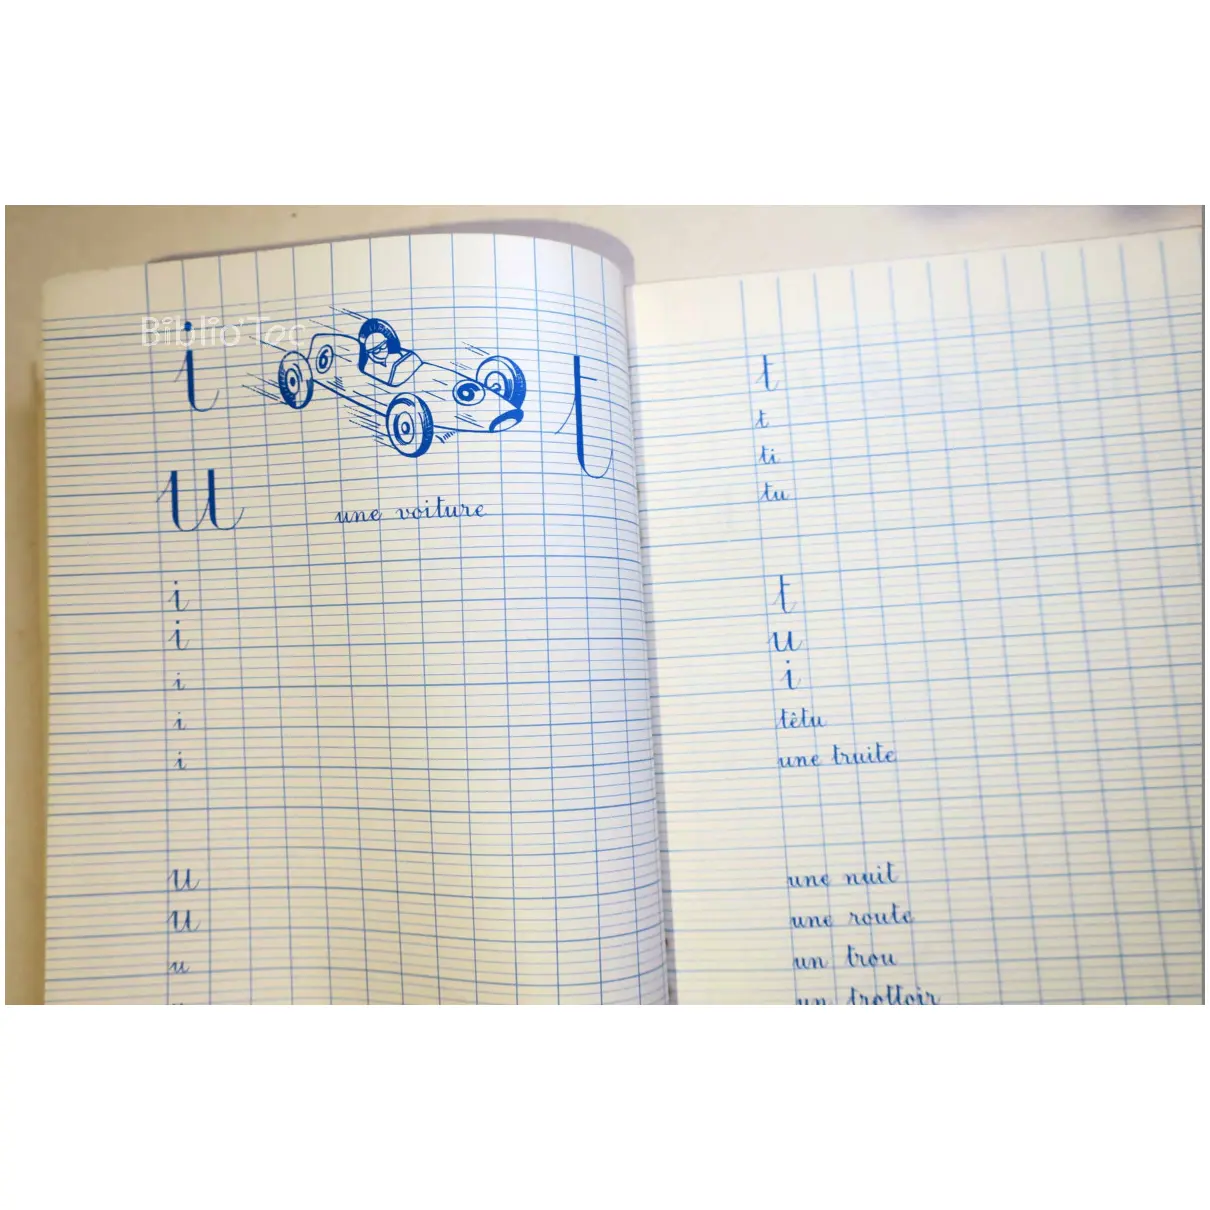 Biblio'Tec
i
6
6
t
u
une voiture
i
i
i
i
i
u
u
u
t
t
ti
tu
t
u
i
têtu
une truite
une nuit
une route
un trou
un trottoir